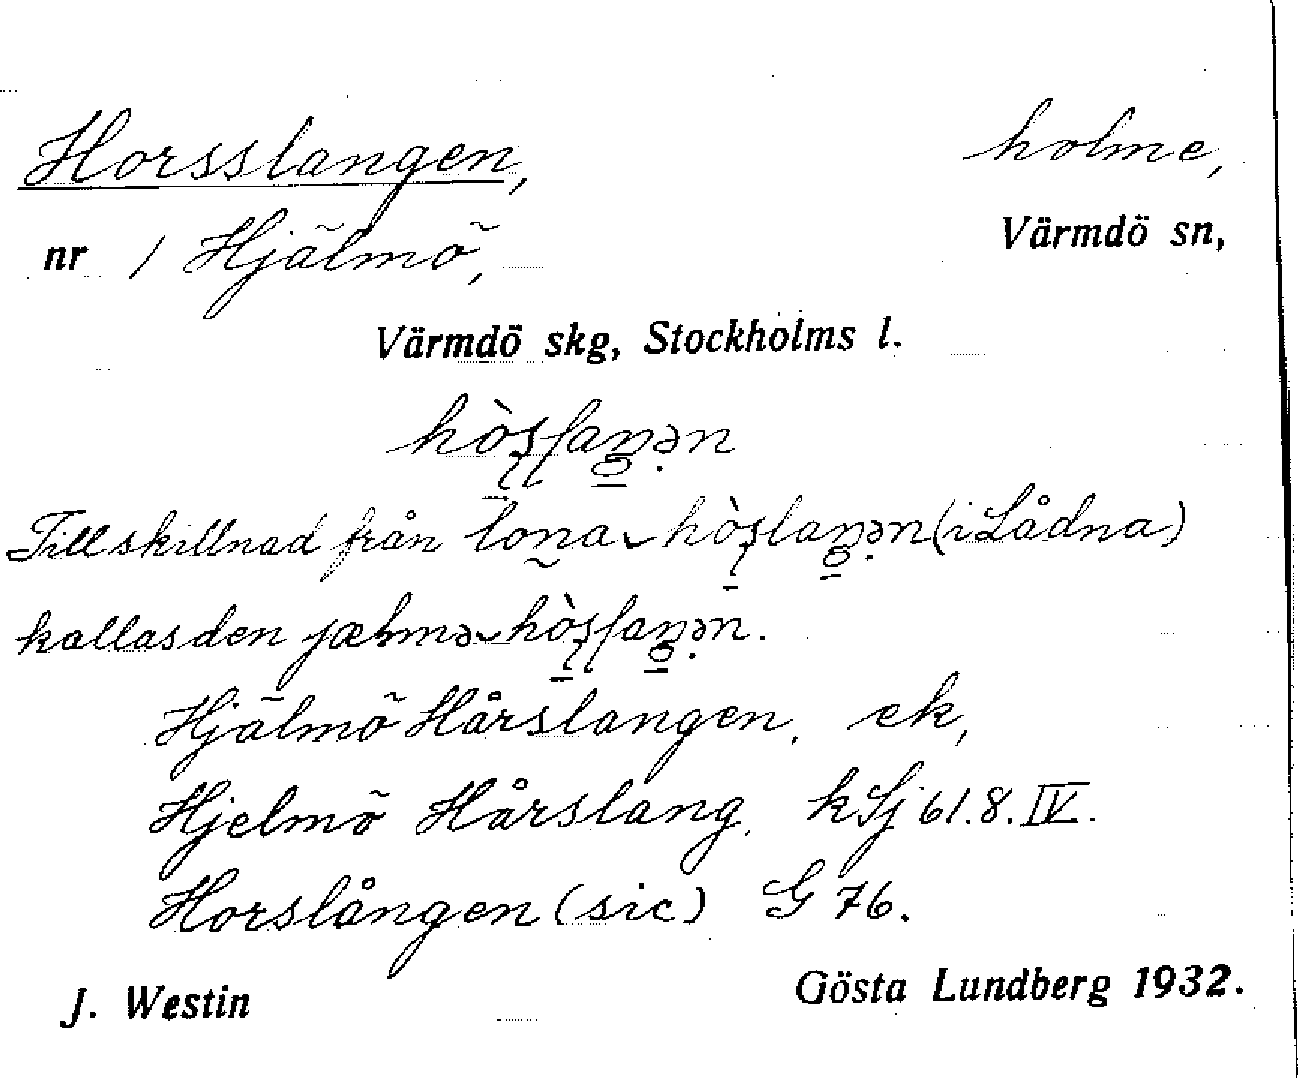 Horsslangen, holme,
nr 1 Hjälmö, Värmdö sn,
Värmdö skg, Stockholms l.
Till skillnad från (i Lådna)
kallas den
Hjälmö Hårslangen, ek,
Hjelmö Hårslang, kSj 61.8.IV.
Horslången (sic) G 76.
J. Westin Gösta Lundberg 1932.